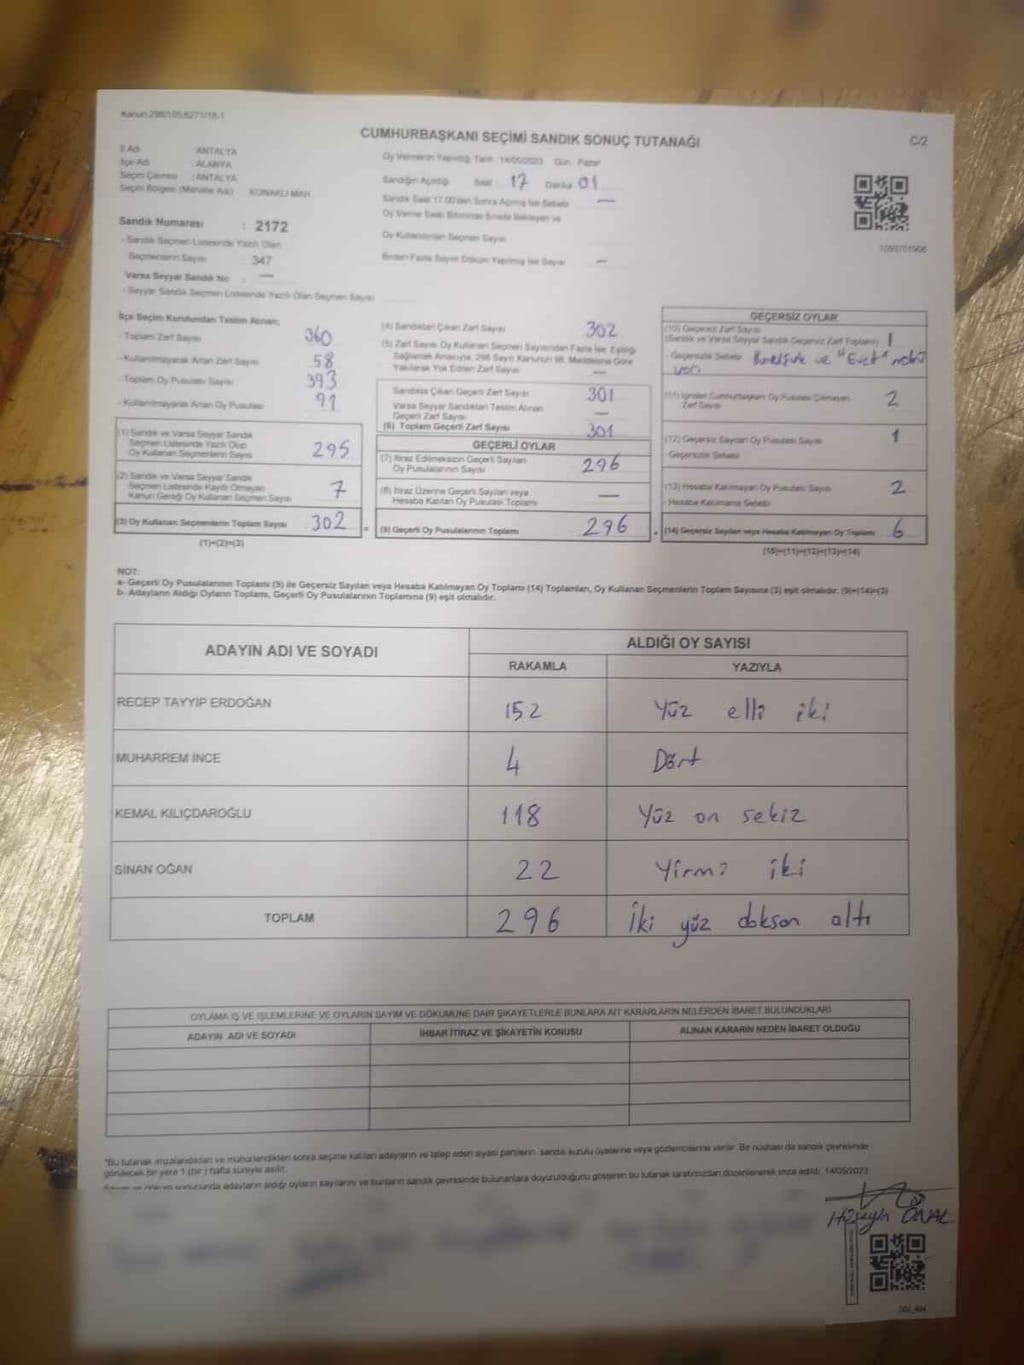 Kanun:298/105,6271/18-1
CUMHURBAŞKANI SEÇİMİ SANDIK SONUÇ TUTANAĞI
C/2
İl Adı : ANTALYA
İlçe Adı : ALANYA
Seçim Çevresi : ANTALYA
Seçim Bölgesi (Mahalle Adı) : KONAKLI MAH.
Sandık Numarası : 2172
- Sandık Seçmen Listesinde Yazılı Olan
Seçmenlerin Sayısı : 347
Varsa Seyyar Sandık No : —
- Seyyar Sandık Seçmen Listesinde Yazılı Olan Seçmen Sayısı
Oy Vermenin Yapıldığı Tarih: 14/05/2023 Gün: Pazar
Sandığın Açıldığı Saat 17 Dakika 01
Sandık Saat 17.00'den Sonra Açılmış İse Sebebi —
Oy Verme Saati Bitiminde Sırada Bekleyen ve
Oy Kullandırılan Seçmen Sayısı
Birden Fazla Sayım Döküm Yapılmış İse Sayısı —
İlçe Seçim Kurulundan Teslim Alınan;
- Toplam Zarf Sayısı 360
- Kullanılmayarak Artan Zarf Sayısı 58
- Toplam Oy Pusulası Sayısı 393
- Kullanılmayarak Artan Oy Pusulası 91
(1) Sandık ve Varsa Seyyar Sandık
Seçmen Listesinde Yazılı Olup
Oy Kullanan Seçmenlerin Sayısı 295
(2) Sandık ve Varsa Seyyar Sandık
Seçmen Listesinde Kayıtlı Olmayan
Kanun Gereği Oy Kullanan Seçmen Sayısı 7
(3) Oy Kullanan Seçmenlerin Toplam Sayısı 302 =
(1)+(2)=(3)
(4) Sandıktan Çıkan Zarf Sayısı 302
(5) Zarf Sayısı Oy Kullanan Seçmen Sayısından Fazla İse, Eşitliği
Sağlamak Amacıyla, 298 Sayılı Kanunun 98. Maddesine Göre
Yakılarak Yok Edilen Zarf Sayısı —
Sandıkta Çıkan Geçerli Zarf Sayısı 301
Varsa Seyyar Sandıktan Teslim Alınan
Geçerli Zarf Sayısı —
(6) Toplam Geçerli Zarf Sayısı 301
GEÇERLİ OYLAR
(7) İtiraz Edilmeksizin Geçerli Sayılan
Oy Pusulalarının Sayısı 296
(8) İtiraz Üzerine Geçerli Sayılan veya
Hesaba Katılan Oy Pusulası Toplamı —
(9) Geçerli Oy Pusulalarının Toplamı 296 +
GEÇERSİZ OYLAR
(10) Geçersiz Zarf Sayısı
(Sandık ve Varsa Seyyar Sandık Geçersiz Zarf Toplamı) 1
- Geçersizlik Sebebi:
(11) İçinden Cumhurbaşkanı Oy Pusulası Çıkmayan
Zarf Sayısı 2
(12) Geçersiz Sayılan Oy Pusulası Sayısı 1
- Geçersizlik Sebebi:
(13) Hesaba Katılmayan Oy Pusulası Sayısı 2
- Hesaba Katılmama Sebebi:
(14) Geçersiz Sayılan veya Hesaba Katılmayan Oy Toplamı 6
(10)+(11)+(12)+(13)=(14)
NOT:
a- Geçerli Oy Pusulalarının Toplamı (9) ile Geçersiz Sayılan veya Hesaba Katılmayan Oy Toplamı (14) Toplamları, Oy Kullanan Seçmenlerin Toplam Sayısına (3) eşit olmalıdır. (9)+(14)=(3)
b- Adayların Aldığı Oyların Toplamı, Geçerli Oy Pusulalarının Toplamına (9) eşit olmalıdır.
ADAYIN ADI VE SOYADI
ALDIĞI OY SAYISI
RAKAMLA YAZIYLA
RECEP TAYYİP ERDOĞAN 152 Yüz elli iki
MUHARREM İNCE 4 Dört
KEMAL KILIÇDAROĞLU 118 Yüz on sekiz
SİNAN OĞAN 22 Yirmi iki
TOPLAM 296 İki yüz doksan altı
OYLAMA İŞ VE İŞLEMLERİNE VE OYLARIN SAYIM VE DÖKÜMÜNE DAİR ŞİKAYETLERLE BUNLARA AİT KARARLARIN NELERDEN İBARET BULUNDUKLARI
ADAYIN ADI VE SOYADI İHBAR İTİRAZ VE ŞİKAYETİN KONUSU ALINAN KARARIN NEDEN İBARET OLDUĞU
"Bu tutanak imzalandıktan ve mühürlendikten sonra seçime katılan adayların ve talep eden siyasi partilerin sandık kurulu üyelerine veya gözlemcilerine verilir. Bir nüshası da sandık çevresinde
görülecek bir yere 1 (bir) hafta süreyle asılır.
Sayım ve döküm sonucunda adayların aldığı oyların sayılarını ve bunların sandık çevresinde bulunanlara duyurulduğunu gösteren bu tutanak tarafımızdan düzenlenerek imza edildi. 14/05/2023
Hüseyin ÖNAL